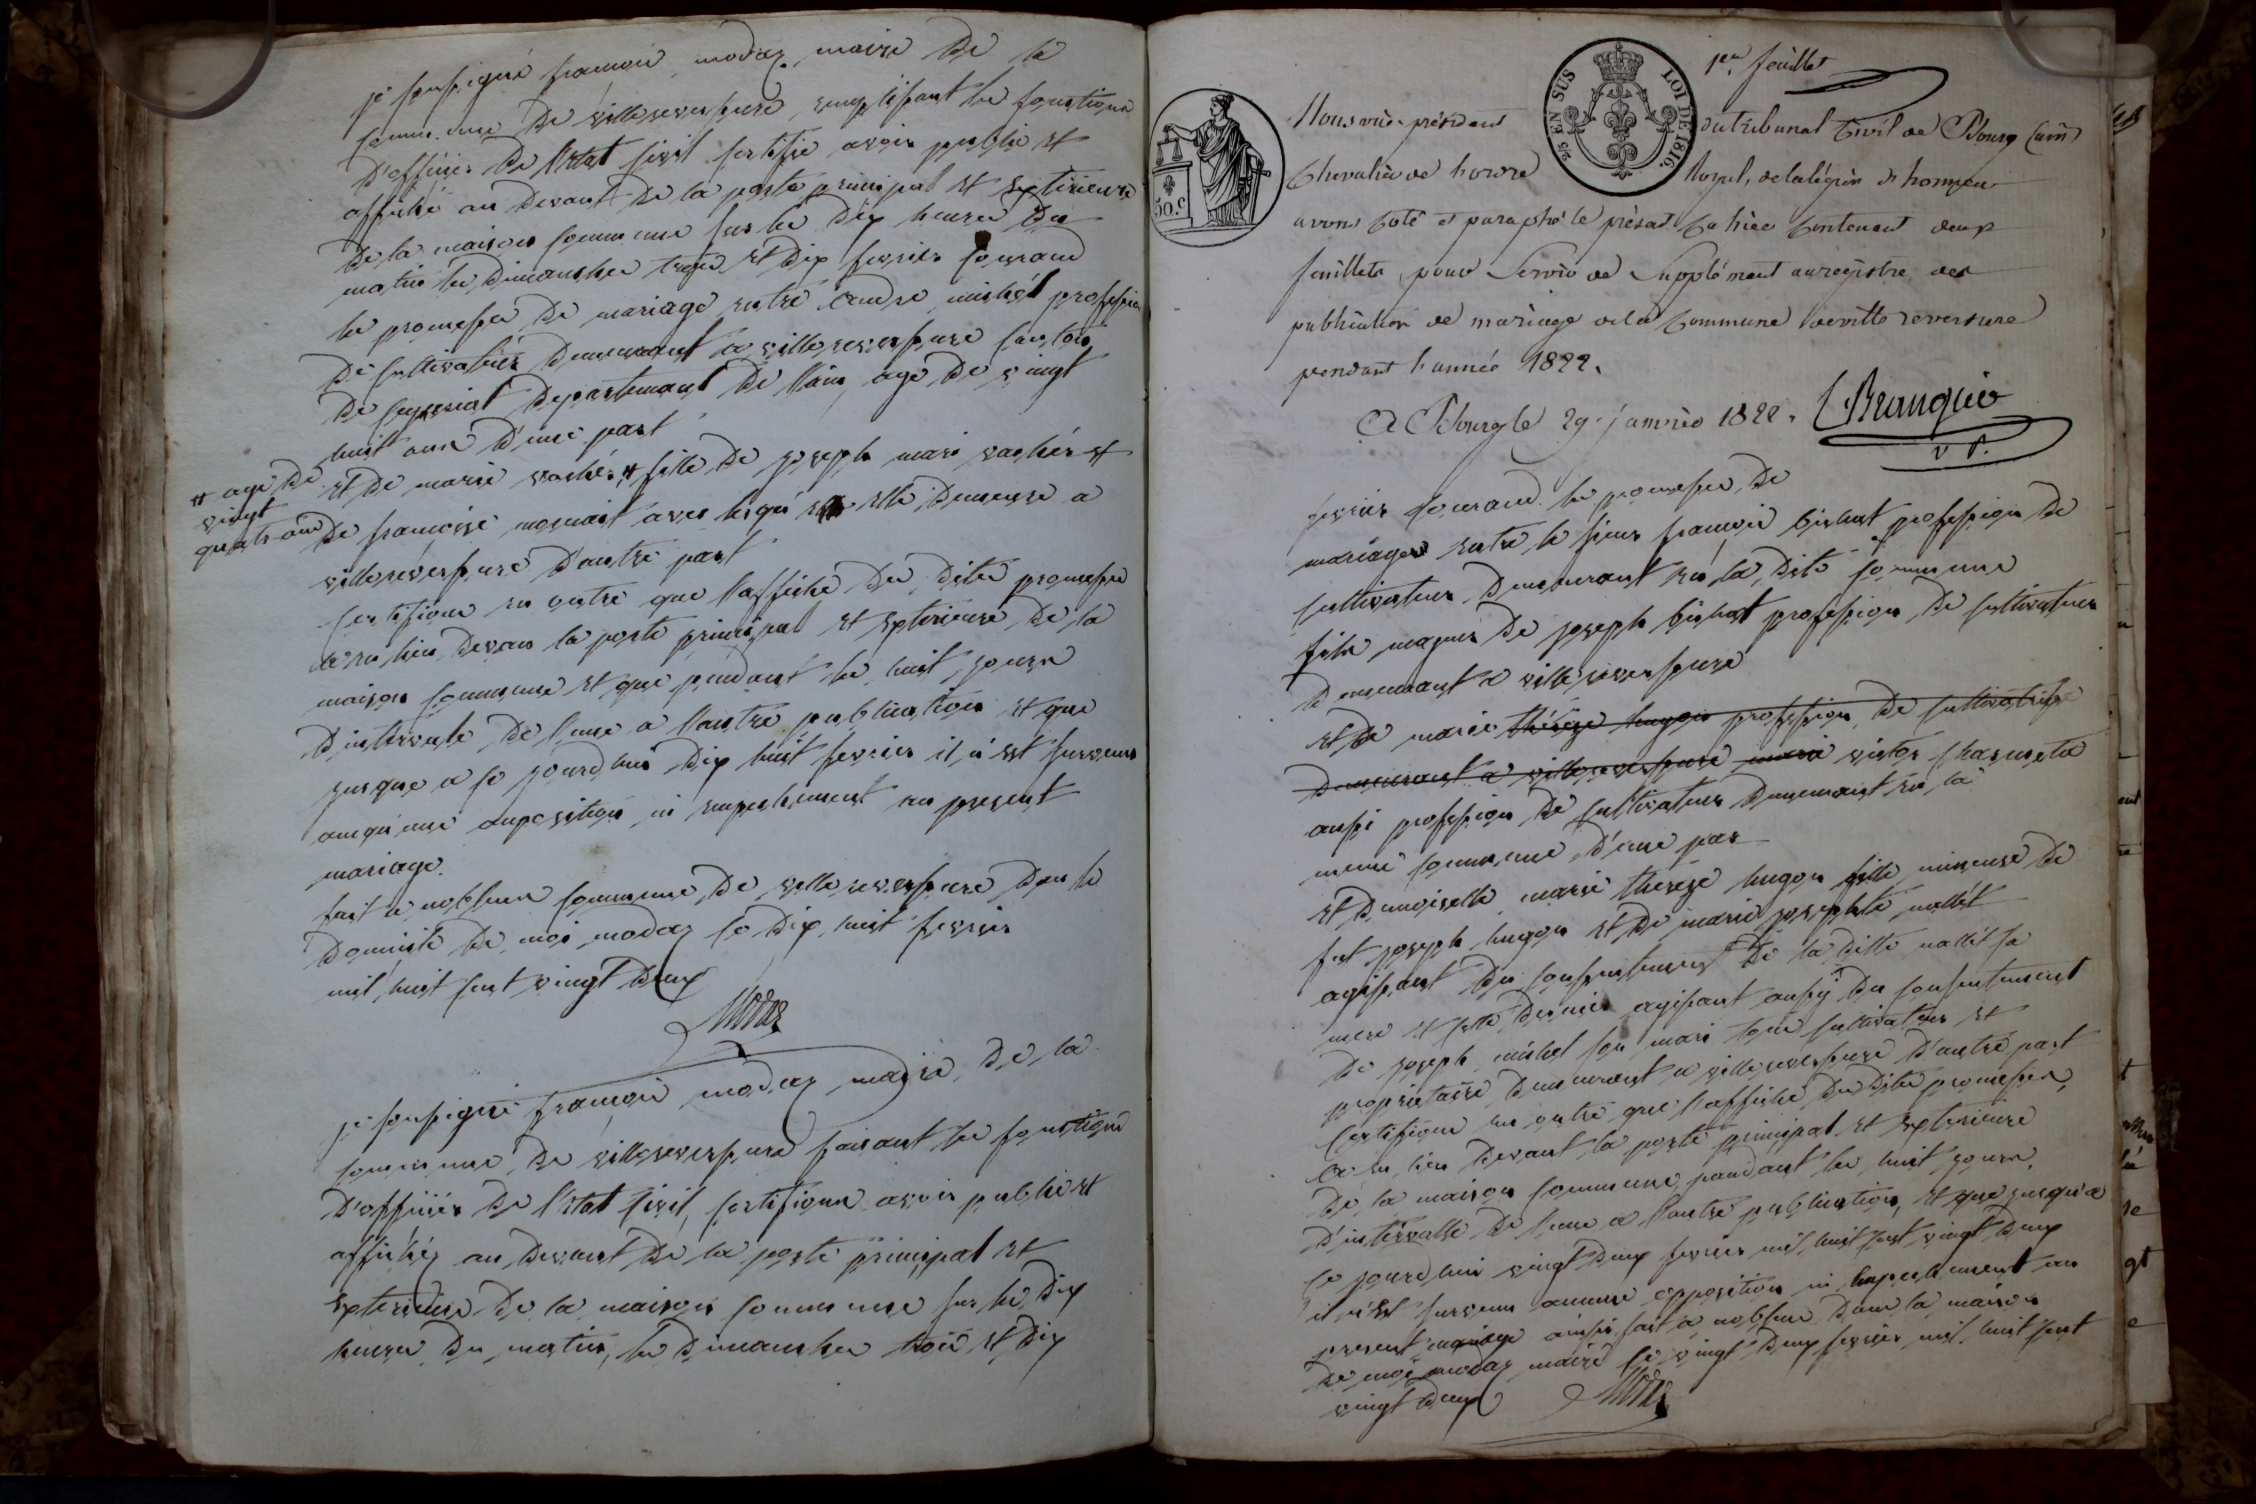 je soussigné francois modas maire de la
commune de villereversure remplissant les fonctions
d'officier de l'etat civil certifie avoir publié et
affiché au devant de la porte principal et exterieure
de la maison commune sur les dix heures du
matin les dimanches trois et dix fevrier courand
les promesses de mariage entre andre michel profession
de cultivateur demeurant a villereversure canton
de ceyzeriat departemant de l'ain age de vingt
huit ans d'une part
et de marie vacher # fille de joseph mari vacher et
# age de
vingt
quatre ans
de francoise mornait avec lesqu elle demeure a
villereversure d'autre part
certifions en outre que l'affiche des dites promesses
a eu lieu devans la porte principal et exterieure de la
maison commune et que pendant les huit jours
d'intervale de l'une a l'autre publication et que
jusque a ce jourd'hui dix huit fevrier il n'est survenu
auqu'une oupposition ni empechement au present
mariage.
fait a noblens commune de villereversure dans le
domicile de moi modas ce dix huit fevrier
mil huit cent vingt deux
Modas
je soussigné francois modas maire de la
commune de villereversure faisant les fonctions
d'officier de l'etat civil, certifions avoir publié et
affiché au devant de la porte principal et
exterieure de la maison commune sur les dix
heures du matin, les dimanches trois et dix
1er feuillet
2/5 EN SUS
LOI DE 1816.
50.c
Nous vice-président du tribunal Civil de Bourg (ain)
Chevalier de l'ordre Royal, de la légion d'honneur
avons Coté et paraphé le présent Cahier Contenant deux
feuillets pour Servir de Supplément au registre des
publication de mariage de la Commune de villereversure
pendant l'année 1822.
A Bourg le 29 janvier 1822.
v P.
fevrier courand les promesses de
mariages entre le sieur francois bichat profession de
cultivateur demeurant en la dite commune
fils majeur de joseph bichat profession de cultivateur
demeurant a villereversure
et de marie thérèze hugon profession de cultivatrice
demeurant a villereversure marie victor charmeta
aussi profession de cultivateur demeurant en la
meme commune d'une par
et demoiselle marie thereze hugon fille mineure de
fut joseph hugon et de marie josephte nallet
agissant du consentement de la ditte nallet sa
mere et cette derniere agissant aussy du consentement
de joseph michel son mari tous cultivateur et
proprietaire demeurant a villereversure d'autre part
certifions en outre que l'affiche des dites promesses
a eu lieu devant la porte principal et exterieure
de la maison commune pandant les huit jours
d'intervalle de l'une a l'autre publication et que jusqu'a
ce jourd'hui vingt deux fevrier mil huit cent vingt deux
il n'est survenu aucune opposition ni empechement au
present mariage ainsi fait a noblens dans la maison
de moi modas maire ce vingt deux fevrier mil huit cent
vingt deux
Modas